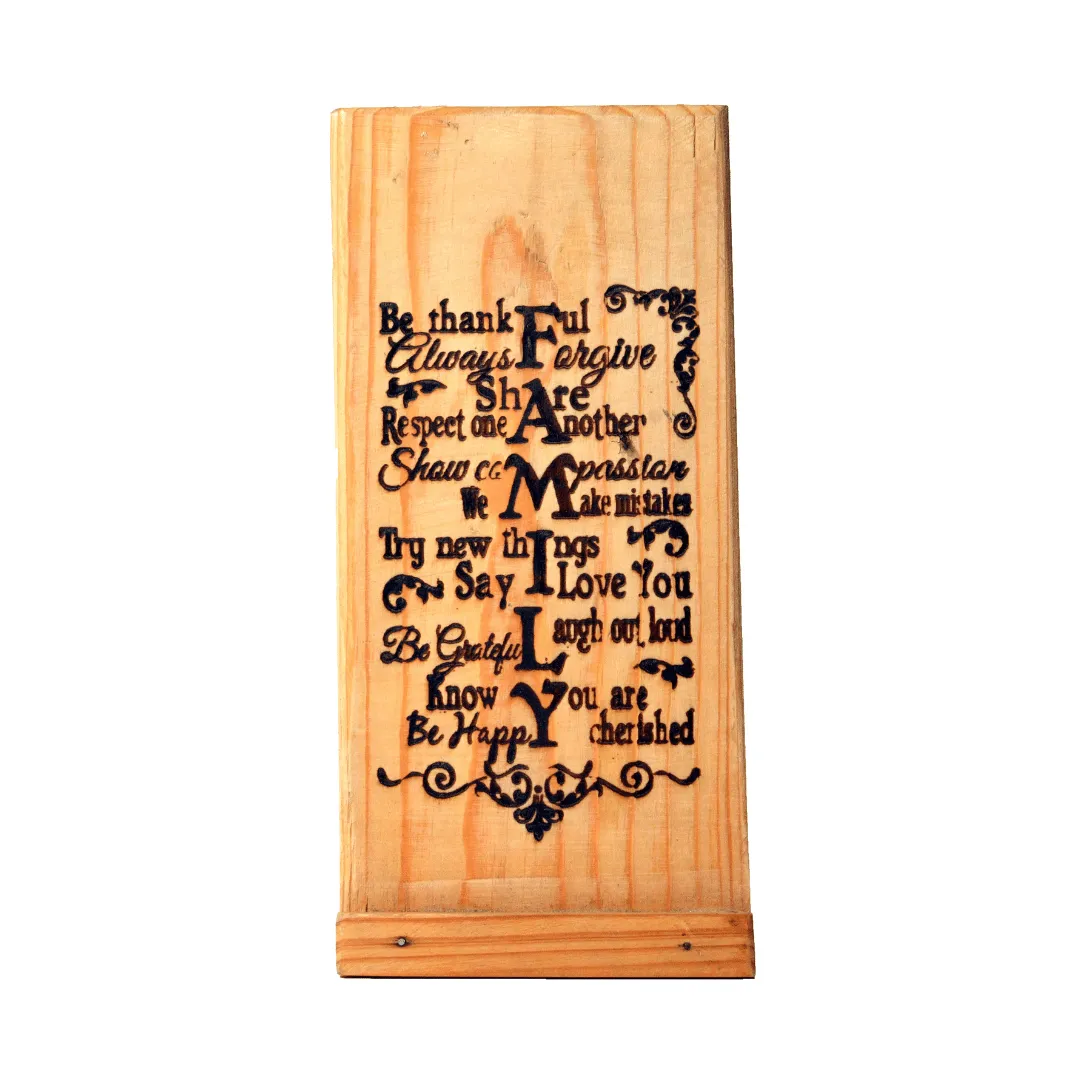 Be thankFul
Always Forgive
ShAre
Respect one Another
Show coMpassion
We Make mistakes
Try new thIngs
Say I Love You
Laugh out loud
Be GratefuL
Know You are
cherished
Be HappY